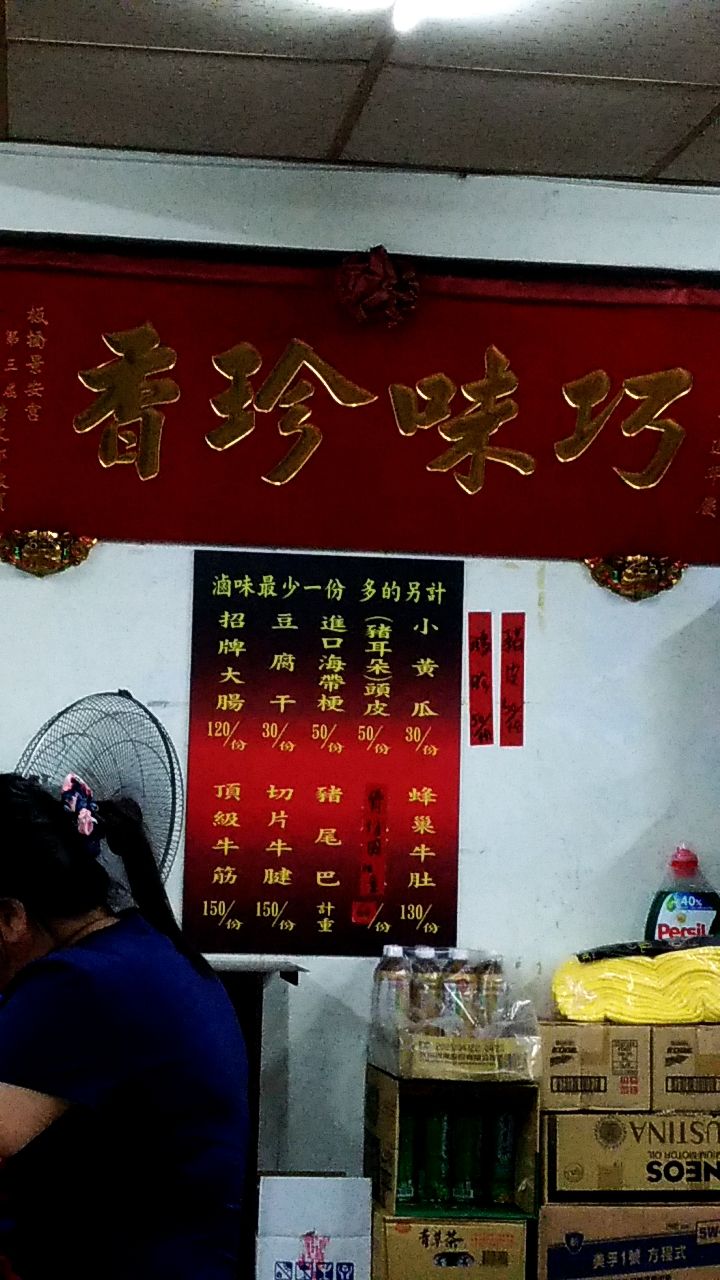 香珍味巧
板橋景安宮
第三屆
滷味最少一份 多的另計
招牌大腸
120/份
豆腐干
30/份
進口海帶梗
50/份
(豬耳朵)頭皮
50/份
小黃瓜
30/份
頂級牛筋
150/份
切片牛腱
150/份
豬尾巴
計重
/份
蜂巢牛肚
130/份
豬皮
40%
Persil
USTINA
MOTOR OIL
NEOS
5W
美孚1號 方程式
青草茶